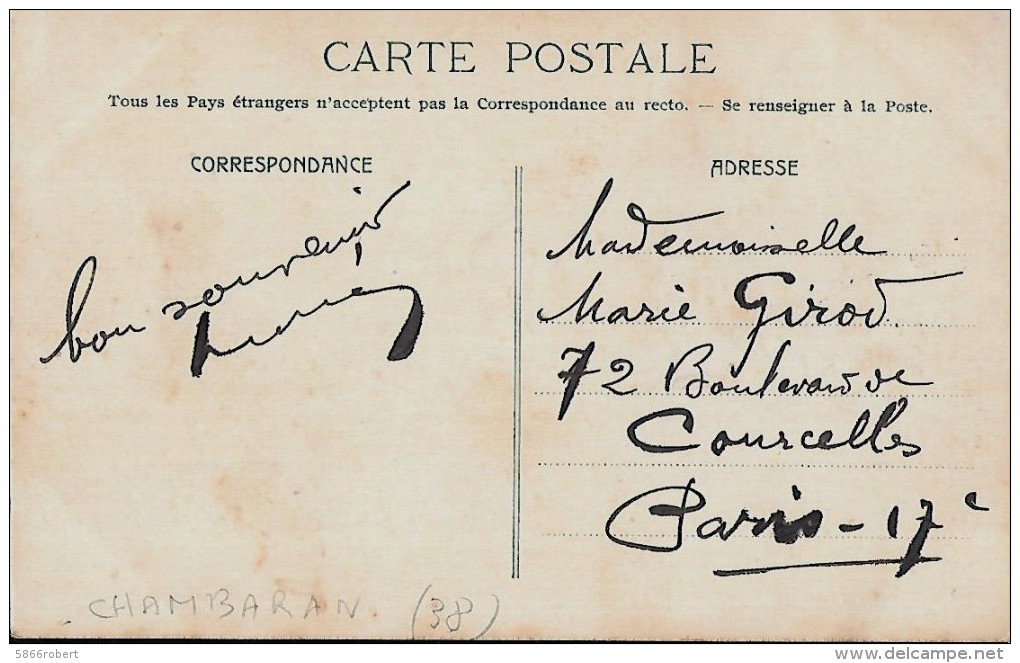 CARTE POSTALE
Tous les Pays étrangers n'acceptent pas la Correspondance au recto. — Se renseigner à la Poste.
CORRESPONDANCE
bon souvenir
ADRESSE
Mademoiselle
Marie Girod
72 Boulevard de
Courcelles
Paris - 17e
CHAMBARAN (38)
5866robert
delcampe.net